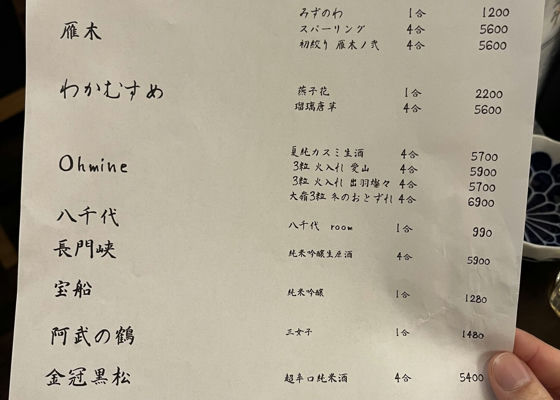 みずのわ 1合 1200
雁木 スパーリング 4合 5600
初絞り 雁木ノ弐 4合 5600
わかむすめ 燕子花 1合 2200
瑠璃唐草 4合 5600
夏純カスミ生酒 4合 5700
Ohmine 3粒 火入れ 愛山 4合 5900
3粒 火入れ 出羽燦々 4合 5700
大嶺3粒 冬のおとずれ 4合 6900
八千代 八千代 room 1合 990
長門峡 純米吟醸生原酒 4合 5900
宝船 純米吟醸 1合 1280
阿武の鶴 三女子 1合 1480
金冠黒松 超辛口純米酒 4合 5400